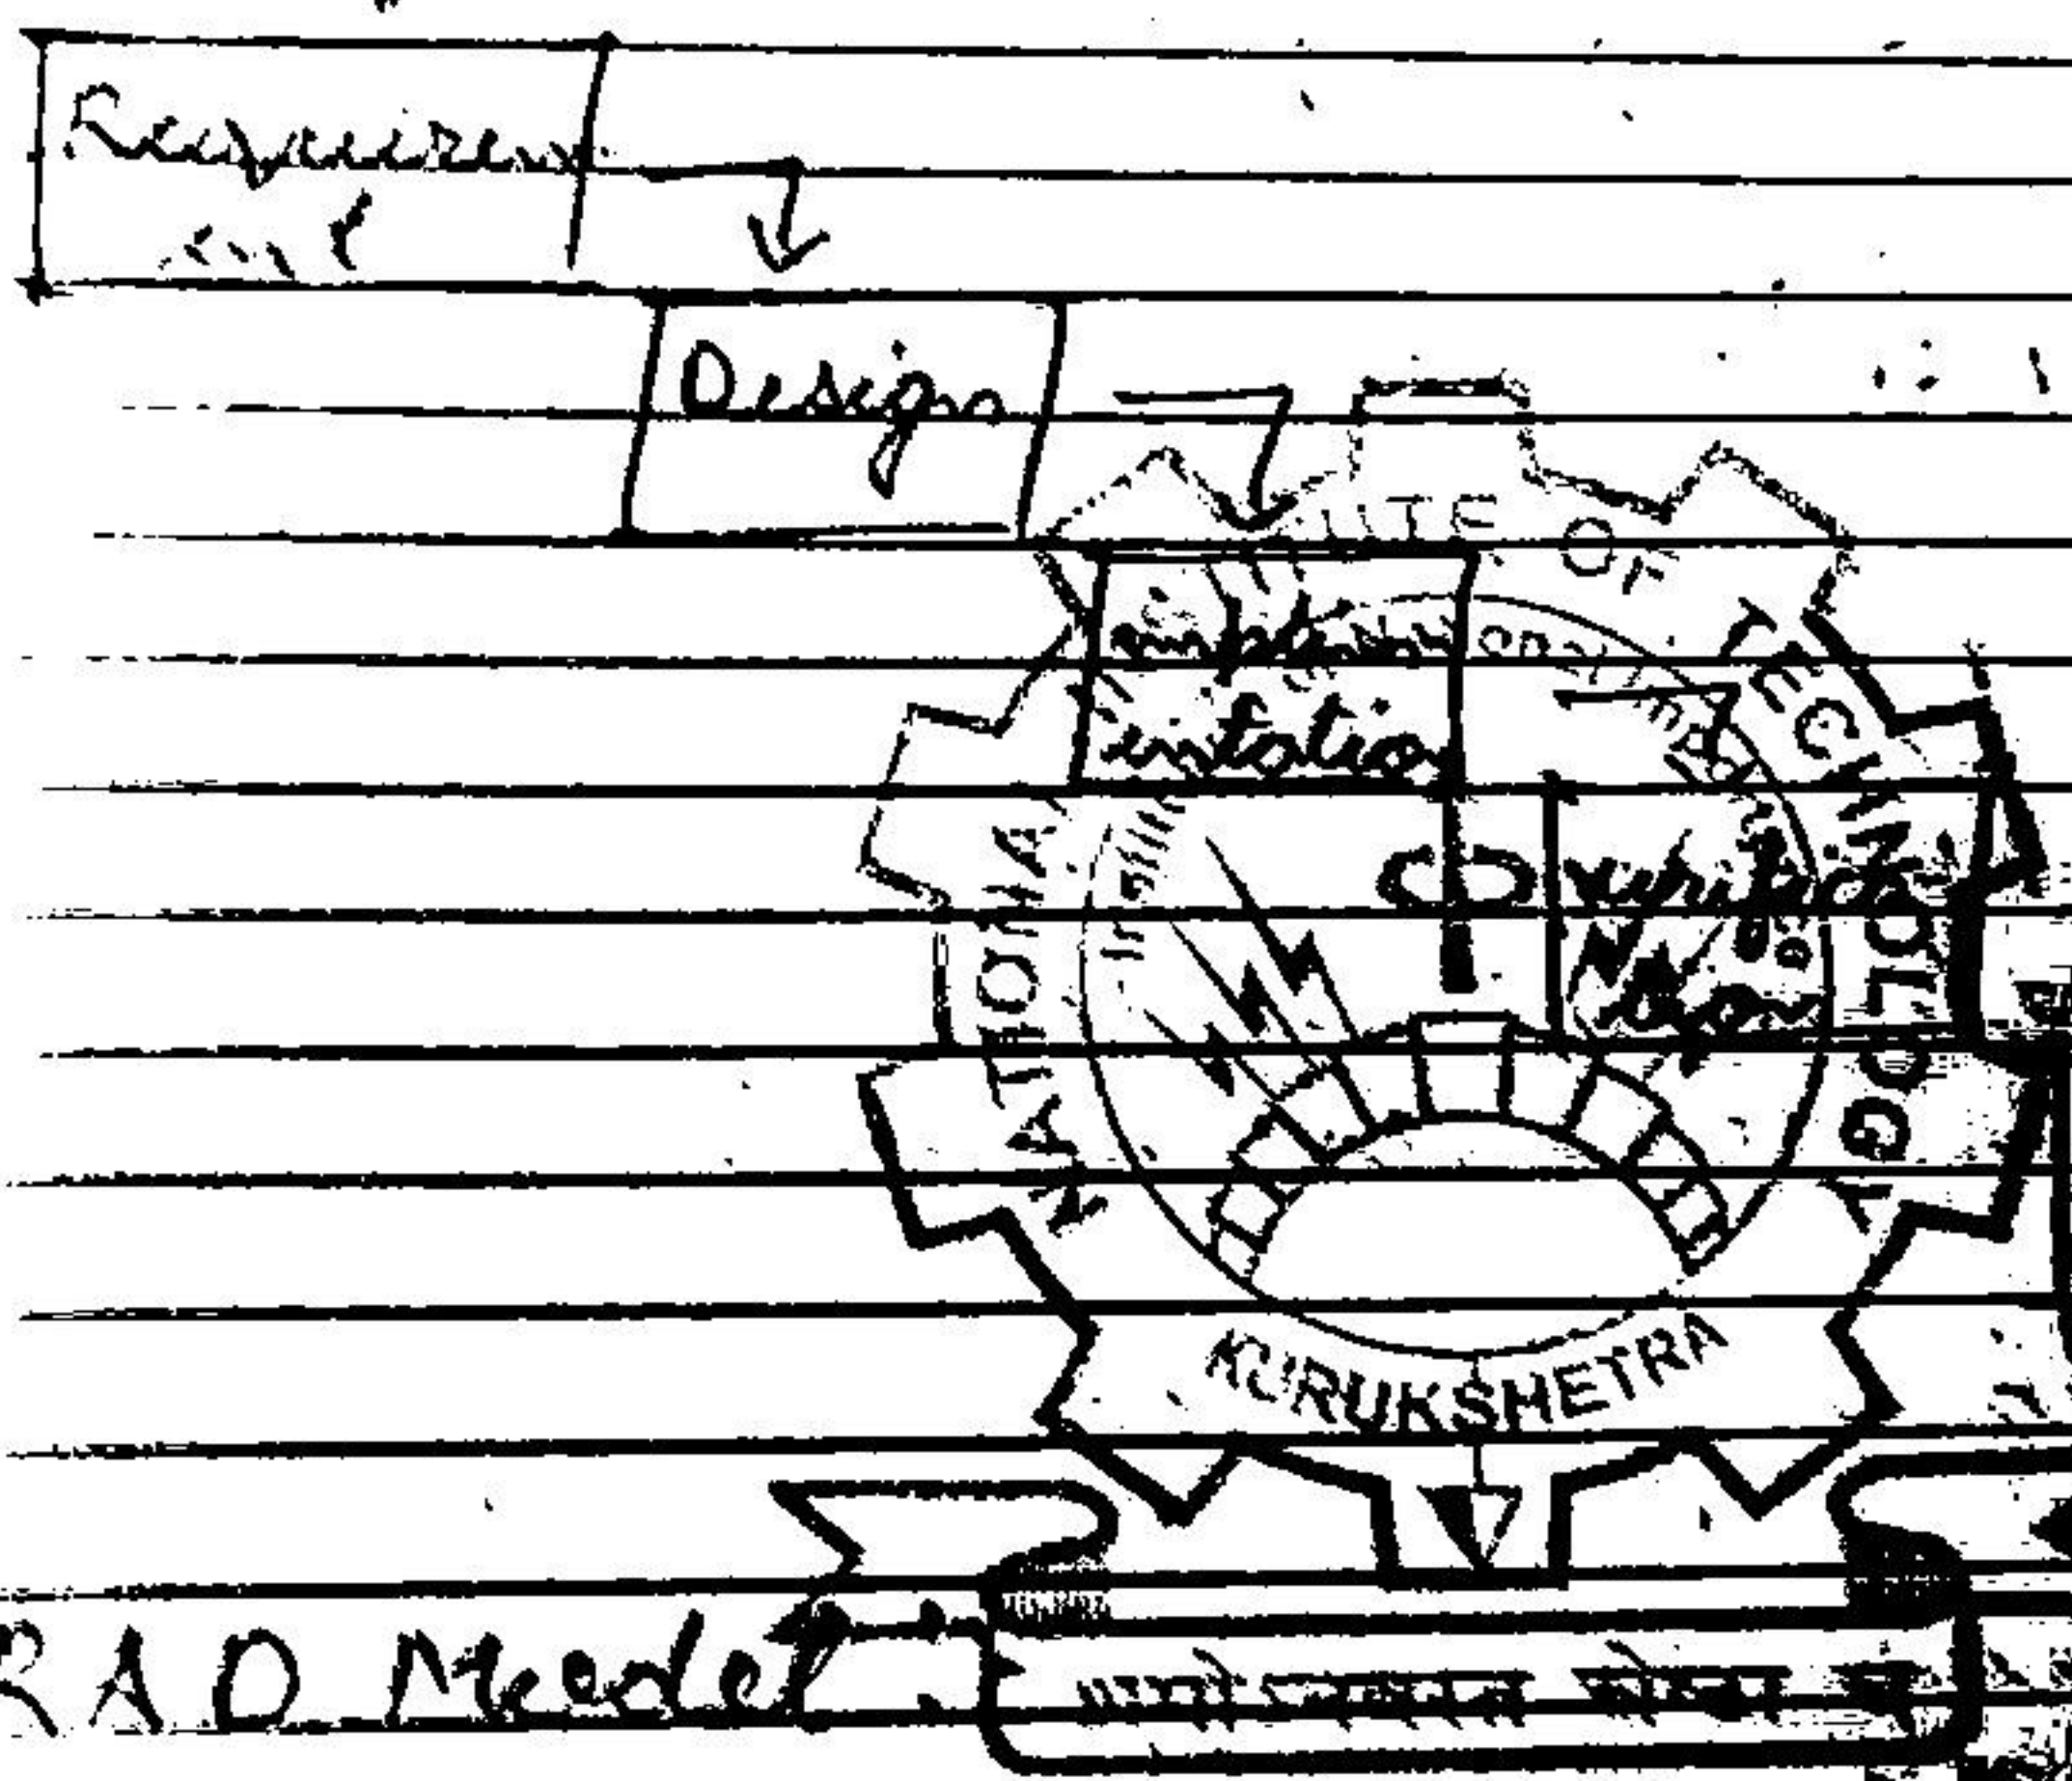 Requirem
ent
Design
implem
entation
verifica
tion
NATIONAL INSTITUTE OF TECHNOLOGY
KURUKSHETRA
RAD Model